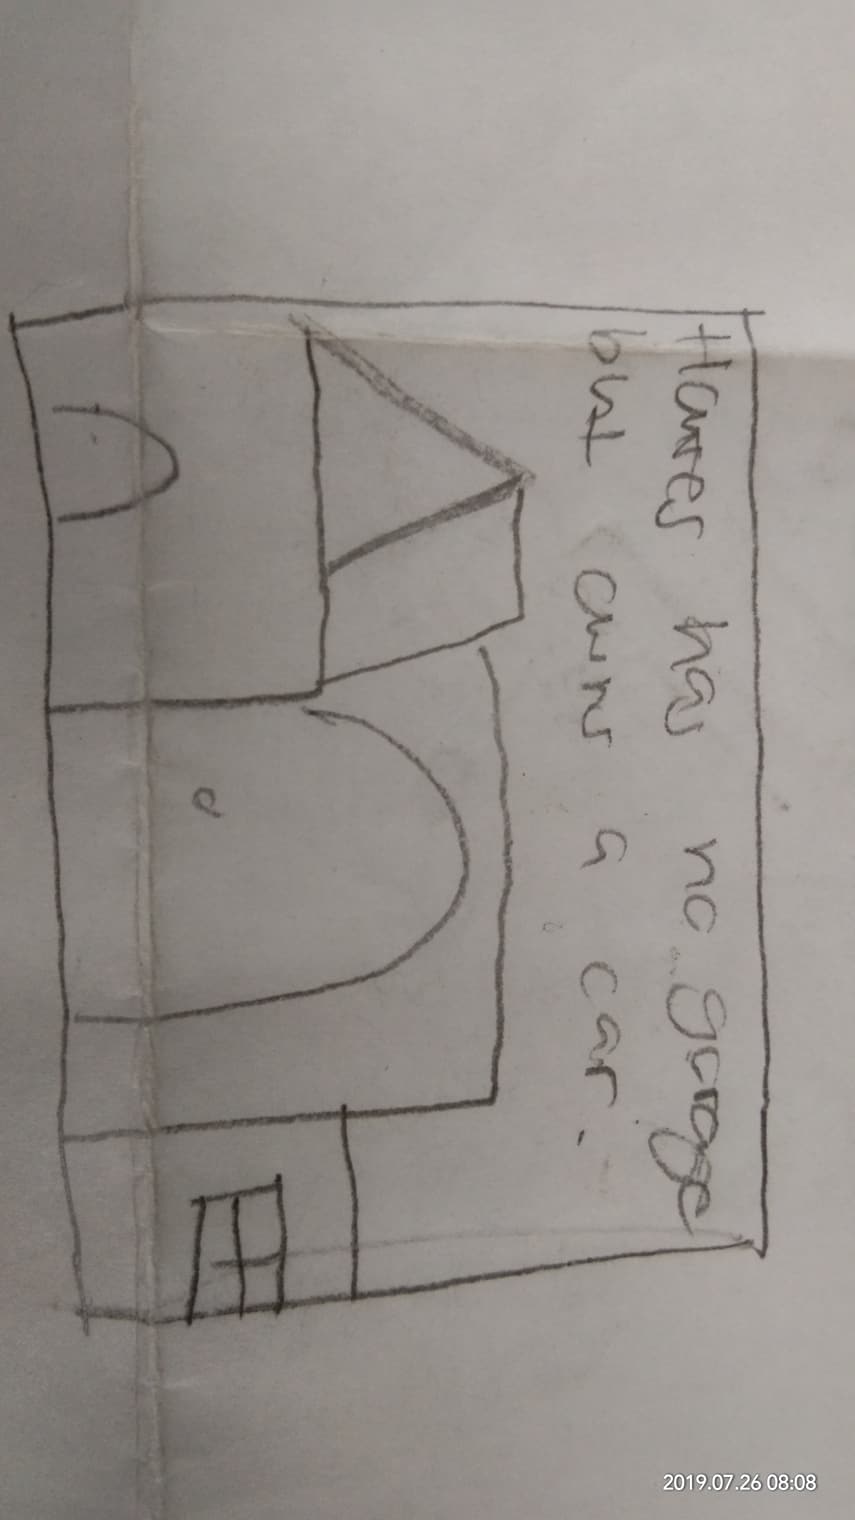 Hawes has no garage
but owns a car.
2019.07.26 08:08